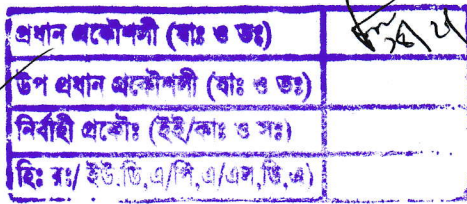 প্রধান প্রকৌশলী (যাঃ ও তঃ)
উপ প্রধান প্রকৌশলী (যাঃ ও তঃ)
নির্বাহী প্রকৌঃ (ইই/কাঃ ও সঃ)
হিঃ রঃ/ ইউ.ডি.এ/পি.এ/এস.ডি.এ)